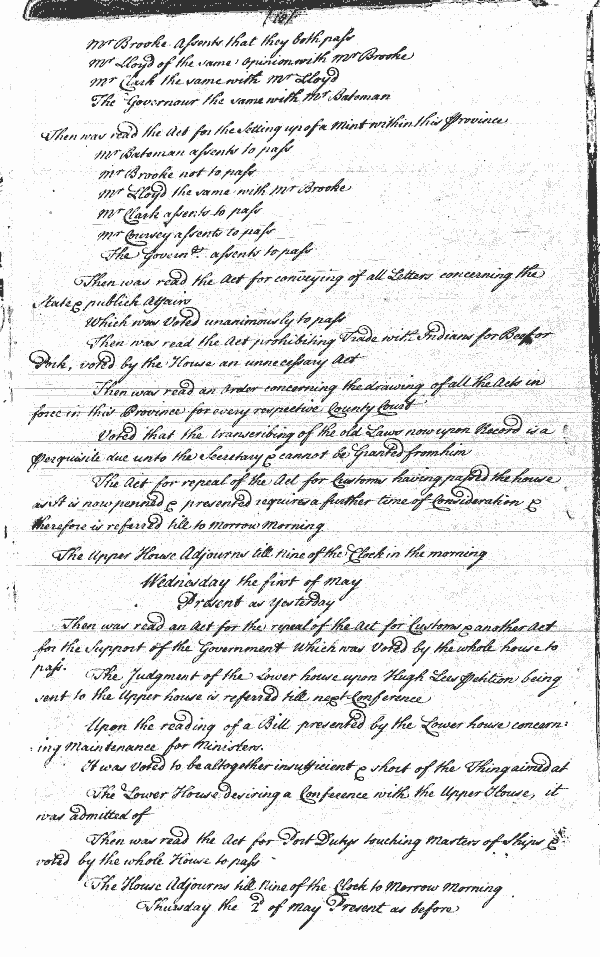 Mr Brooke Assents that they both pass
Mr Lloyd of the same opinion with Mr Brooke
Mr Clark the same with Mr Lloyd
The Governour the same with Mr Bateman
Then was read the Act for the Setting up of a Mint within this Province
Mr Bateman assents to pass
Mr Brooke not to pass
Mr Lloyd the same with Mr Brooke
Mr Clark assents to pass
Mr Coursey assents to pass
The Governr. assents to pass
Then was read the Act for conveying of all Letters concerning the
State & publick Affairs
Which was Voted unanimously to pass
Then was read the Act prohibiting Trade with Indians for Beaf or
Pork, voted by the House an unnecessary Act
Then was read an order concerning the drawing of all the Acts in
force in this Province for every respective County Court
Voted that the transcribing of the old Laws now upon Record is a
Perquisite due unto the Secretary & cannot be Granted from him
The Act for repeal of the Act for Customs having passed the house
as It is now penned & presented requires a further time of Consideration &
therefore is referred till to Morrow Morning
The Upper House Adjourns till Nine of the Clock in the morning
Wednesday the first of May
Present as Yesterday
Then was read an Act for the repeal of the Act for Customs & another Act
for the Support of the Government Which was Voted by the whole house to
pass.
The Judgment of the Lower house upon Hugh Lees Petition being
sent to the Upper house is referred till next Conference
Upon the reading of a Bill presented by the Lower house concern:
ing Maintenance for Ministers.
It was Voted to be altogether insufficient & short of the Thing aimed at
The Lower House desiring a Conference with the Upper House, it
was admitted of
Then was read the Act for Port Dutys touching Masters of Ships &
voted by the whole House to pass
The House Adjourns till Nine of the Clock to Morrow Morning
Thursday the 2d of May Present as before